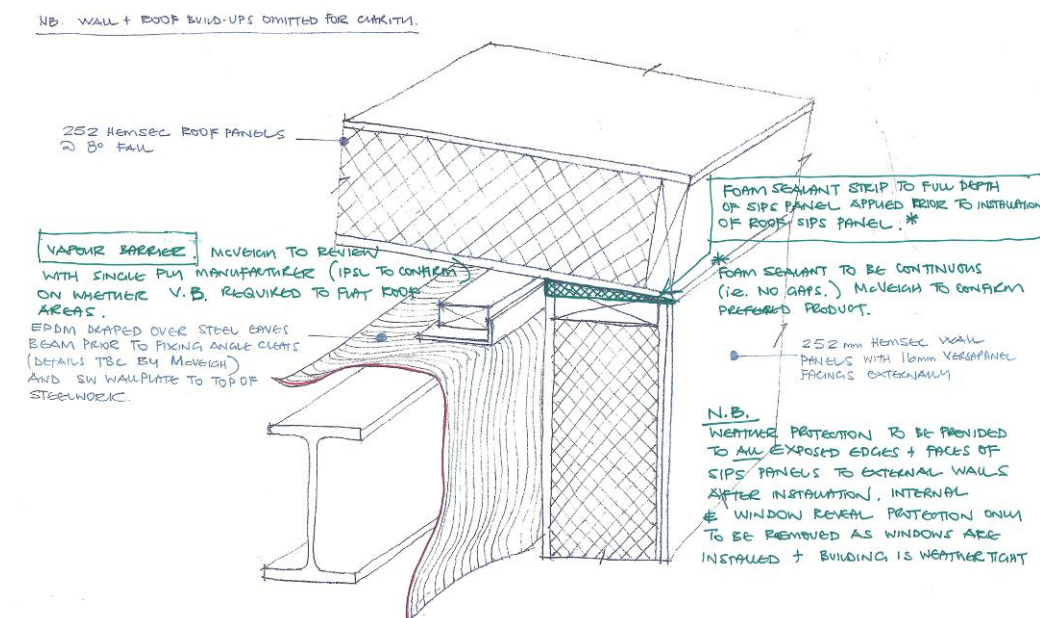 NB. WALL + ROOF BUILD-UPS OMITTED FOR CLARITY.
252 HEMSEC ROOF PANELS
@ 8° FALL
VAPOUR BARRIER. MCVEIGH TO REVIEW
WITH SINGLE PLY MANUFACTURER (IPSL TO CONFIRM)
ON WHETHER V.B. REQUIRED TO FLAT ROOF
AREAS.
EPDM DRAPED OVER STEEL EAVES
BEAM PRIOR TO FIXING ANGLE CLEATS
(DETAILS TBC BY MCVEIGH)
AND SW WALLPLATE TO TOP OF
STEELWORK.
FOAM SEALANT STRIP TO FULL DEPTH
OF SIPS PANEL APPLIED PRIOR TO INSTALLATION
OF ROOF SIPS PANEL. *
*
FOAM SEALANT TO BE CONTINUOUS
(i.e. NO GAPS.) MCVEIGH TO CONFIRM
PREFERED PRODUCT.
252 mm HEMSEC WALL
PANELS WITH 16mm VERSAPANEL
FACINGS EXTERNALLY
N.B.
WEATHER PROTECTION TO BE PROVIDED
TO ALL EXPOSED EDGES + FACES OF
SIPS PANELS TO EXTERNAL WALLS
AFTER INSTALLATION. INTERNAL
& WINDOW REVEAL PROTECTION ONLY
TO BE REMOVED AS WINDOWS ARE
INSTALLED + BUILDING IS WEATHER TIGHT